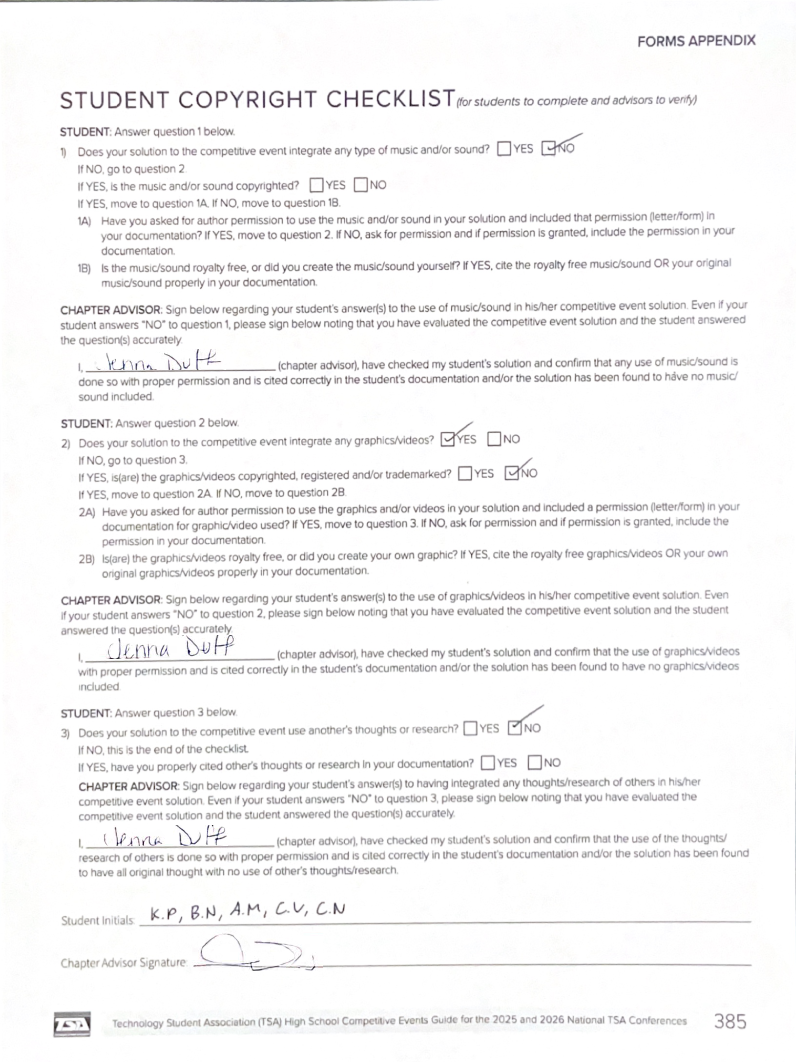 FORMS APPENDIX
STUDENT COPYRIGHT CHECKLIST (for students to complete and advisors to verify)
STUDENT: Answer question 1 below.
1) Does your solution to the competitive event integrate any type of music and/or sound? YES NO
If NO, go to question 2.
If YES, is the music and/or sound copyrighted? YES NO
If YES, move to question 1A. If NO, move to question 1B.
1A) Have you asked for author permission to use the music and/or sound in your solution and included that permission (letter/form) in
your documentation? If YES, move to question 2. If NO, ask for permission and if permission is granted, include the permission in your
documentation.
1B) Is the music/sound royalty free, or did you create the music/sound yourself? If YES, cite the royalty free music/sound OR your original
music/sound properly in your documentation.
CHAPTER ADVISOR: Sign below regarding your student's answer(s) to the use of music/sound in his/her competitive event solution. Even if your
student answers "NO" to question 1, please sign below noting that you have evaluated the competitive event solution and the student answered
the question(s) accurately.
I, Jenna Duff (chapter advisor), have checked my student's solution and confirm that any use of music/sound is
done so with proper permission and is cited correctly in the student's documentation and/or the solution has been found to have no music/
sound included.
STUDENT: Answer question 2 below.
2) Does your solution to the competitive event integrate any graphics/videos? YES NO
If NO, go to question 3.
If YES, is(are) the graphics/videos copyrighted, registered and/or trademarked? YES NO
If YES, move to question 2A. If NO, move to question 2B.
2A) Have you asked for author permission to use the graphics and/or videos in your solution and included a permission (letter/form) in your
documentation for graphic/video used? If YES, move to question 3. If NO, ask for permission and if permission is granted, include the
permission in your documentation.
2B) Is(are) the graphics/videos royalty free, or did you create your own graphic? If YES, cite the royalty free graphics/videos OR your own
original graphics/videos properly in your documentation.
CHAPTER ADVISOR: Sign below regarding your student's answer(s) to the use of graphics/videos in his/her competitive event solution. Even
if your student answers "NO" to question 2, please sign below noting that you have evaluated the competitive event solution and the student
answered the question(s) accurately.
I, Jenna Duff (chapter advisor), have checked my student's solution and confirm that the use of graphics/videos
with proper permission and is cited correctly in the student's documentation and/or the solution has been found to have no graphics/videos
included.
STUDENT: Answer question 3 below.
3) Does your solution to the competitive event use another's thoughts or research? YES NO
If NO, this is the end of the checklist.
If YES, have you properly cited other's thoughts or research in your documentation? YES NO
CHAPTER ADVISOR: Sign below regarding your student's answer(s) to having integrated any thoughts/research of others in his/her
competitive event solution. Even if your student answers "NO" to question 3, please sign below noting that you have evaluated the
competitive event solution and the student answered the question(s) accurately.
I, Jenna Duff (chapter advisor), have checked my student's solution and confirm that the use of the thoughts/
research of others is done so with proper permission and is cited correctly in the student's documentation and/or the solution has been found
to have all original thought with no use of other's thoughts/research.
Student Initials: K.P, B.N, A.M, C.V, C.N
Chapter Advisor Signature:
TSA Technology Student Association (TSA) High School Competitive Events Guide for the 2025 and 2026 National TSA Conferences 385